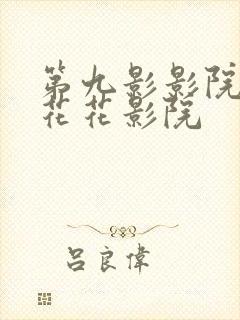 第九影影院
花花影院
吕良偉